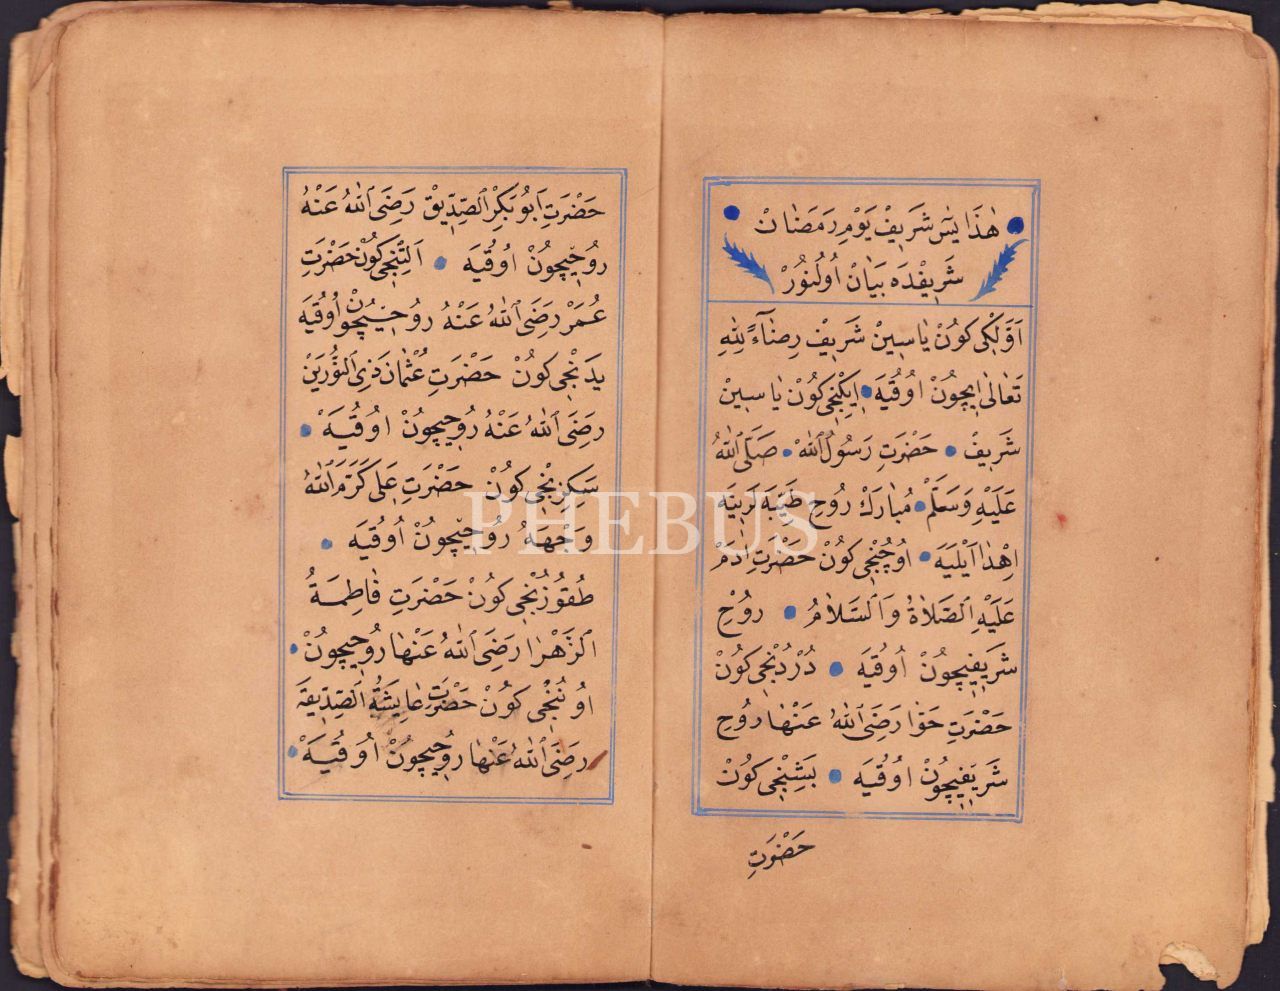 هٰذَا يٰسٓ شَرِيفْ يَوْمِ رَمَضَانْ
شَرِيفْدَه بَيَانْ اُولُنُورْ
اَوَّلْكِى كُونْ يَاسِينْ شَرِيفْ رِضَآءً لِلّٰهِ
تَعَالٰى اِيچُونْ اُوقُيَه اِيكِنْجِى كُونْ يَاسِينْ
شَرِيفْ حَضْرَتِ رَسُولُ اللّٰهْ صَلَّى اللّٰهُ
عَلَيْهِ وَسَلَّمْ مُبَارَكْ رُوحِ طَيِّبَه لَرِينَه
اِهْدَا اَيْلَيَه اُوچُنْجِى كُونْ حَضْرَتِ اٰدَمْ
عَلَيْهِ الصَّلَاةُ وَالسَّلَامُ رُوحِ
شَرِيفِيچُونْ اُوقُيَه دُرْدُنْجِى كُونْ
حَضْرَتِ حَوَّا رَضِىَ اللّٰهُ عَنْهَا رُوحِ
شَرِيفِيچُونْ اُوقُيَه بَشِنْجِى كُونْ
حَضْرَتِ
حَضْرَتِ اَبُو بَكْرِ الصِّدِّيقْ رَضِىَ اللّٰهُ عَنْهُ
رُوحِيچُونْ اُوقُيَه اَلْتِنْجِى كُونْ حَضْرَتِ
عُمَرْ رَضِىَ اللّٰهُ عَنْهُ رُوحِيچُونْ اُوقُيَه
يَدِنْجِى كُونْ حَضْرَتِ عُثْمَانَ ذِى النُّورَيْنِ
رَضِىَ اللّٰهُ عَنْهُ رُوحِيچُونْ اُوقُيَهْ
سَكِزِنْجِى كُونْ حَضْرَتِ عَلِى كَرَّمَ اللّٰهُ
وَجْهَهُ رُوحِيچُونْ اُوقُيَه
طُقُوزُنْجِى كُونْ حَضْرَتِ فَاطِمَةُ
الزَّهْرَا رَضِىَ اللّٰهُ عَنْهَا رُوحِيچُونْ
اُونُنْجِى كُونْ حَضْرَتِ عَايِشَةُ الصِّدِّيقَه
رَضِىَ اللّٰهُ عَنْهَا رُوحِيچُونْ اُوقُيَهْ
PHEBUS